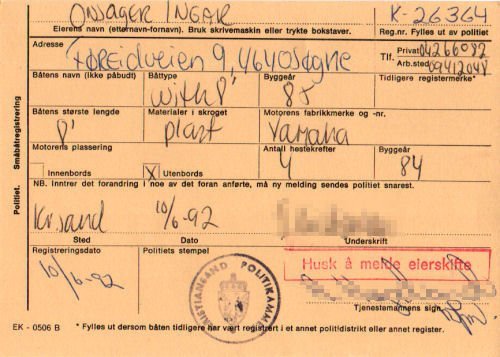 ONSAGER INGAR K-26364
Eierens navn (etternavn-fornavn). Bruk skrivemaskin eller trykte bokstaver. Reg.nr. Fylles ut av politiet
Adresse Tlf. Privat 04266082
Føreidveien 9, 4640 Søgne Arb.sted 09412048
Båtens navn (ikke påbudt) Båttype Byggeår Tidligere registermerke*
With 8' 85
Båtens største lengde Materialer i skroget Motorens fabrikkmerke og -nr.
8' plast Yamaha
Motorens plassering Antall hestekrefter Byggeår
Innenbords X Utenbords 4 84
NB. Inntrer det forandring i noe av det foran anførte, må ny melding sendes politiet snarest.
Kr.sand 10/6-92
Sted Dato Underskrift
Registreringsdato Politiets stempel
10/6-92
KRISTIANSAND POLITIKAMMER
Husk å melde eierskifte
Tjenestemannens sign.
EK - 0506 B * Fylles ut dersom båten tidligere har vært registrert i et annet politidistrikt eller annet register.
Politiet. Småbåtregistrering